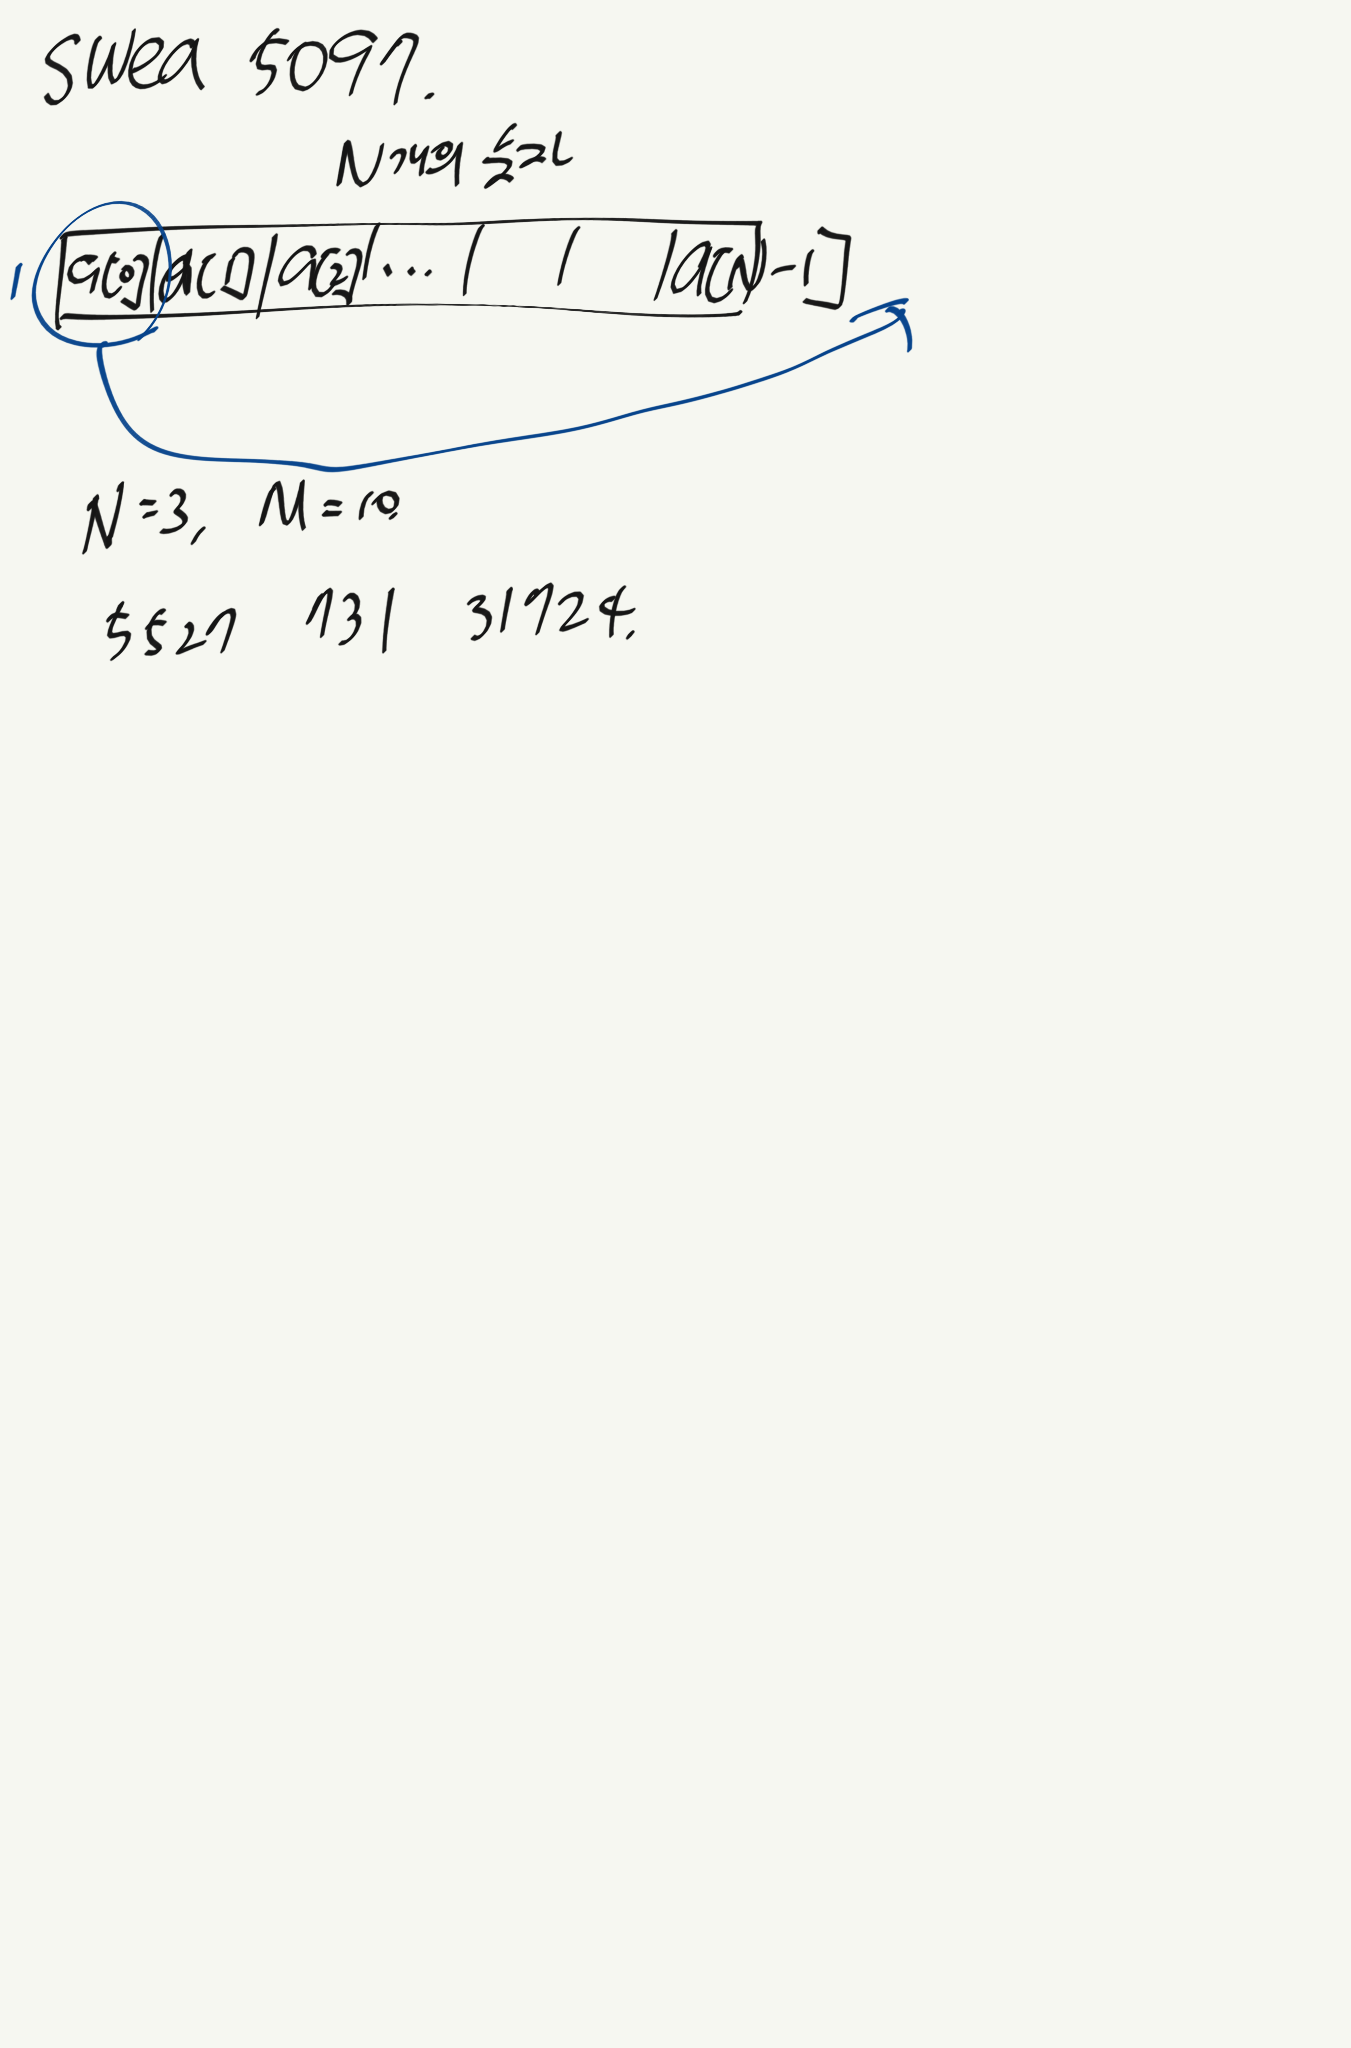 swea 5097.
N개의 숫자
1 a[0] a[1] a[2] ... a[N-1]
N=3, M=10.
5527 731 31724.